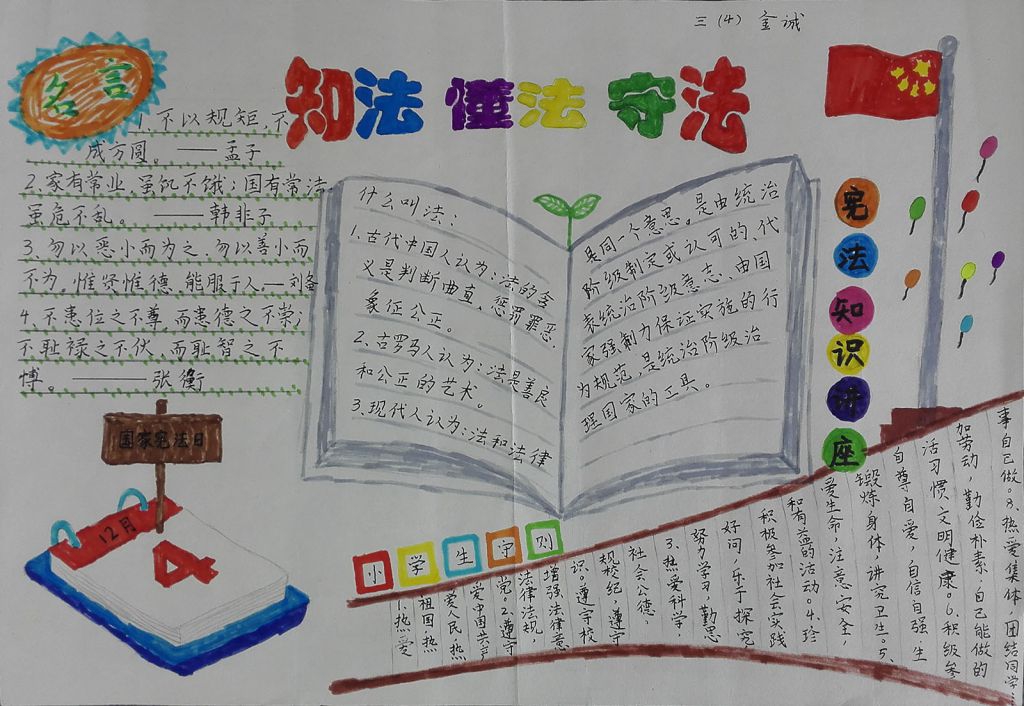 三（4） 金诚
知法 懂法 守法
名言
1、不以规矩，不
成方圆。——孟子
2、家有常业，虽饥不饿；国有常法，
虽危不乱。——韩非子
3、勿以恶小而为之，勿以善小而
不为。惟贤惟德，能服于人。—刘备
4、不患位之不尊，而患德之不崇；
不耻禄之不伙，而耻智之不
博。———张衡
国家宪法日
12月
4
什么叫法：
1、古代中国人认为：法的含
义是判断曲直，惩罚罪恶，
象征公正。
2、古罗马人认为：法是善良
和公正的艺术。
3、现代人认为：法和法律
是同一个意思。是由统治
阶级制定或认可的、代
表统治阶级意志、由国
家强制力保证实施的行
为规范，是统治阶级治
理国家的工具。
宪法知识讲座
小学生守则
1、热爱
祖国，热
爱人民，热
爱中国共产
党。2、遵守
法律法规，
增强法律意
识。遵守校
规校纪，遵守
社会公德。
3、热爱科学，
努力学习，勤思
好问，乐于探究，
积极参加社会实践
和有益的活动。4、珍
爱生命，注意安全，
锻炼身体，讲究卫生。5、
自尊自爱，自信自强，生
活习惯文明健康。6、积极参
加劳动，勤俭朴素，自己能做的
事自己做。8、热爱集体，团结同学…